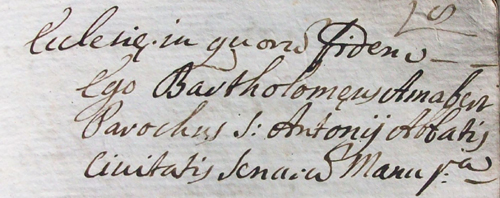 Ecclesię in quorū fidem
Ego Bartholomęus Amaberi
Parochus S: Antonij Abbatis
Civitatis Senarū Manu pª